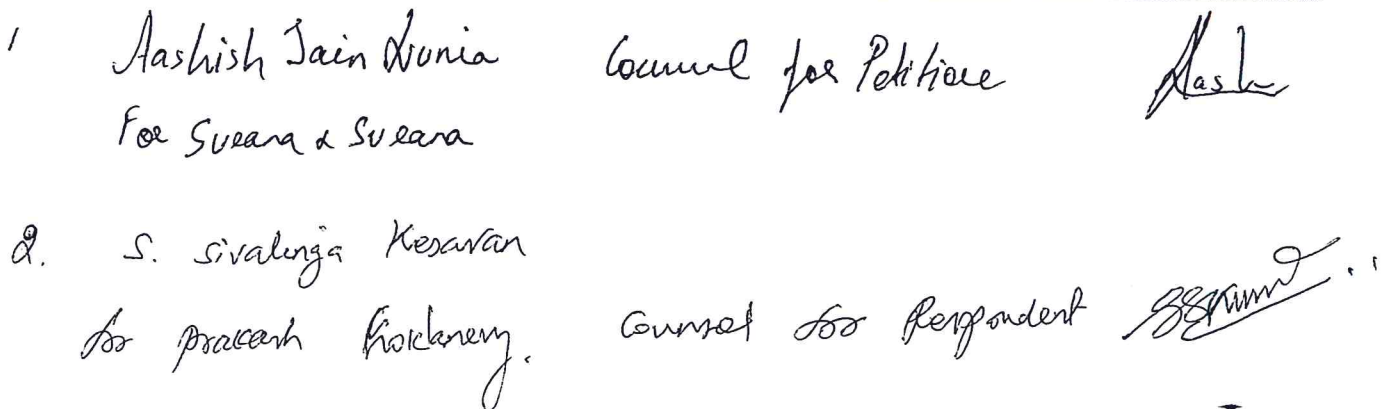 1 Aashish Jain Lunia Counsel for Petitioner
For Surana & Surana
2. S. Sivalinga Kesavan
for Prakash Counsel for Respondent